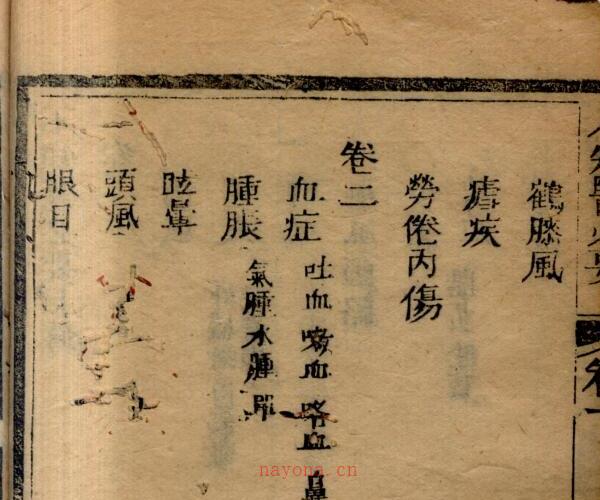 鶴膝風
瘧疾
勞倦內傷
卷二
血症 吐血 嗽血 咯血
腫脹 氣腫 水腫
眩暈
頭風
眼目
nayona.cn